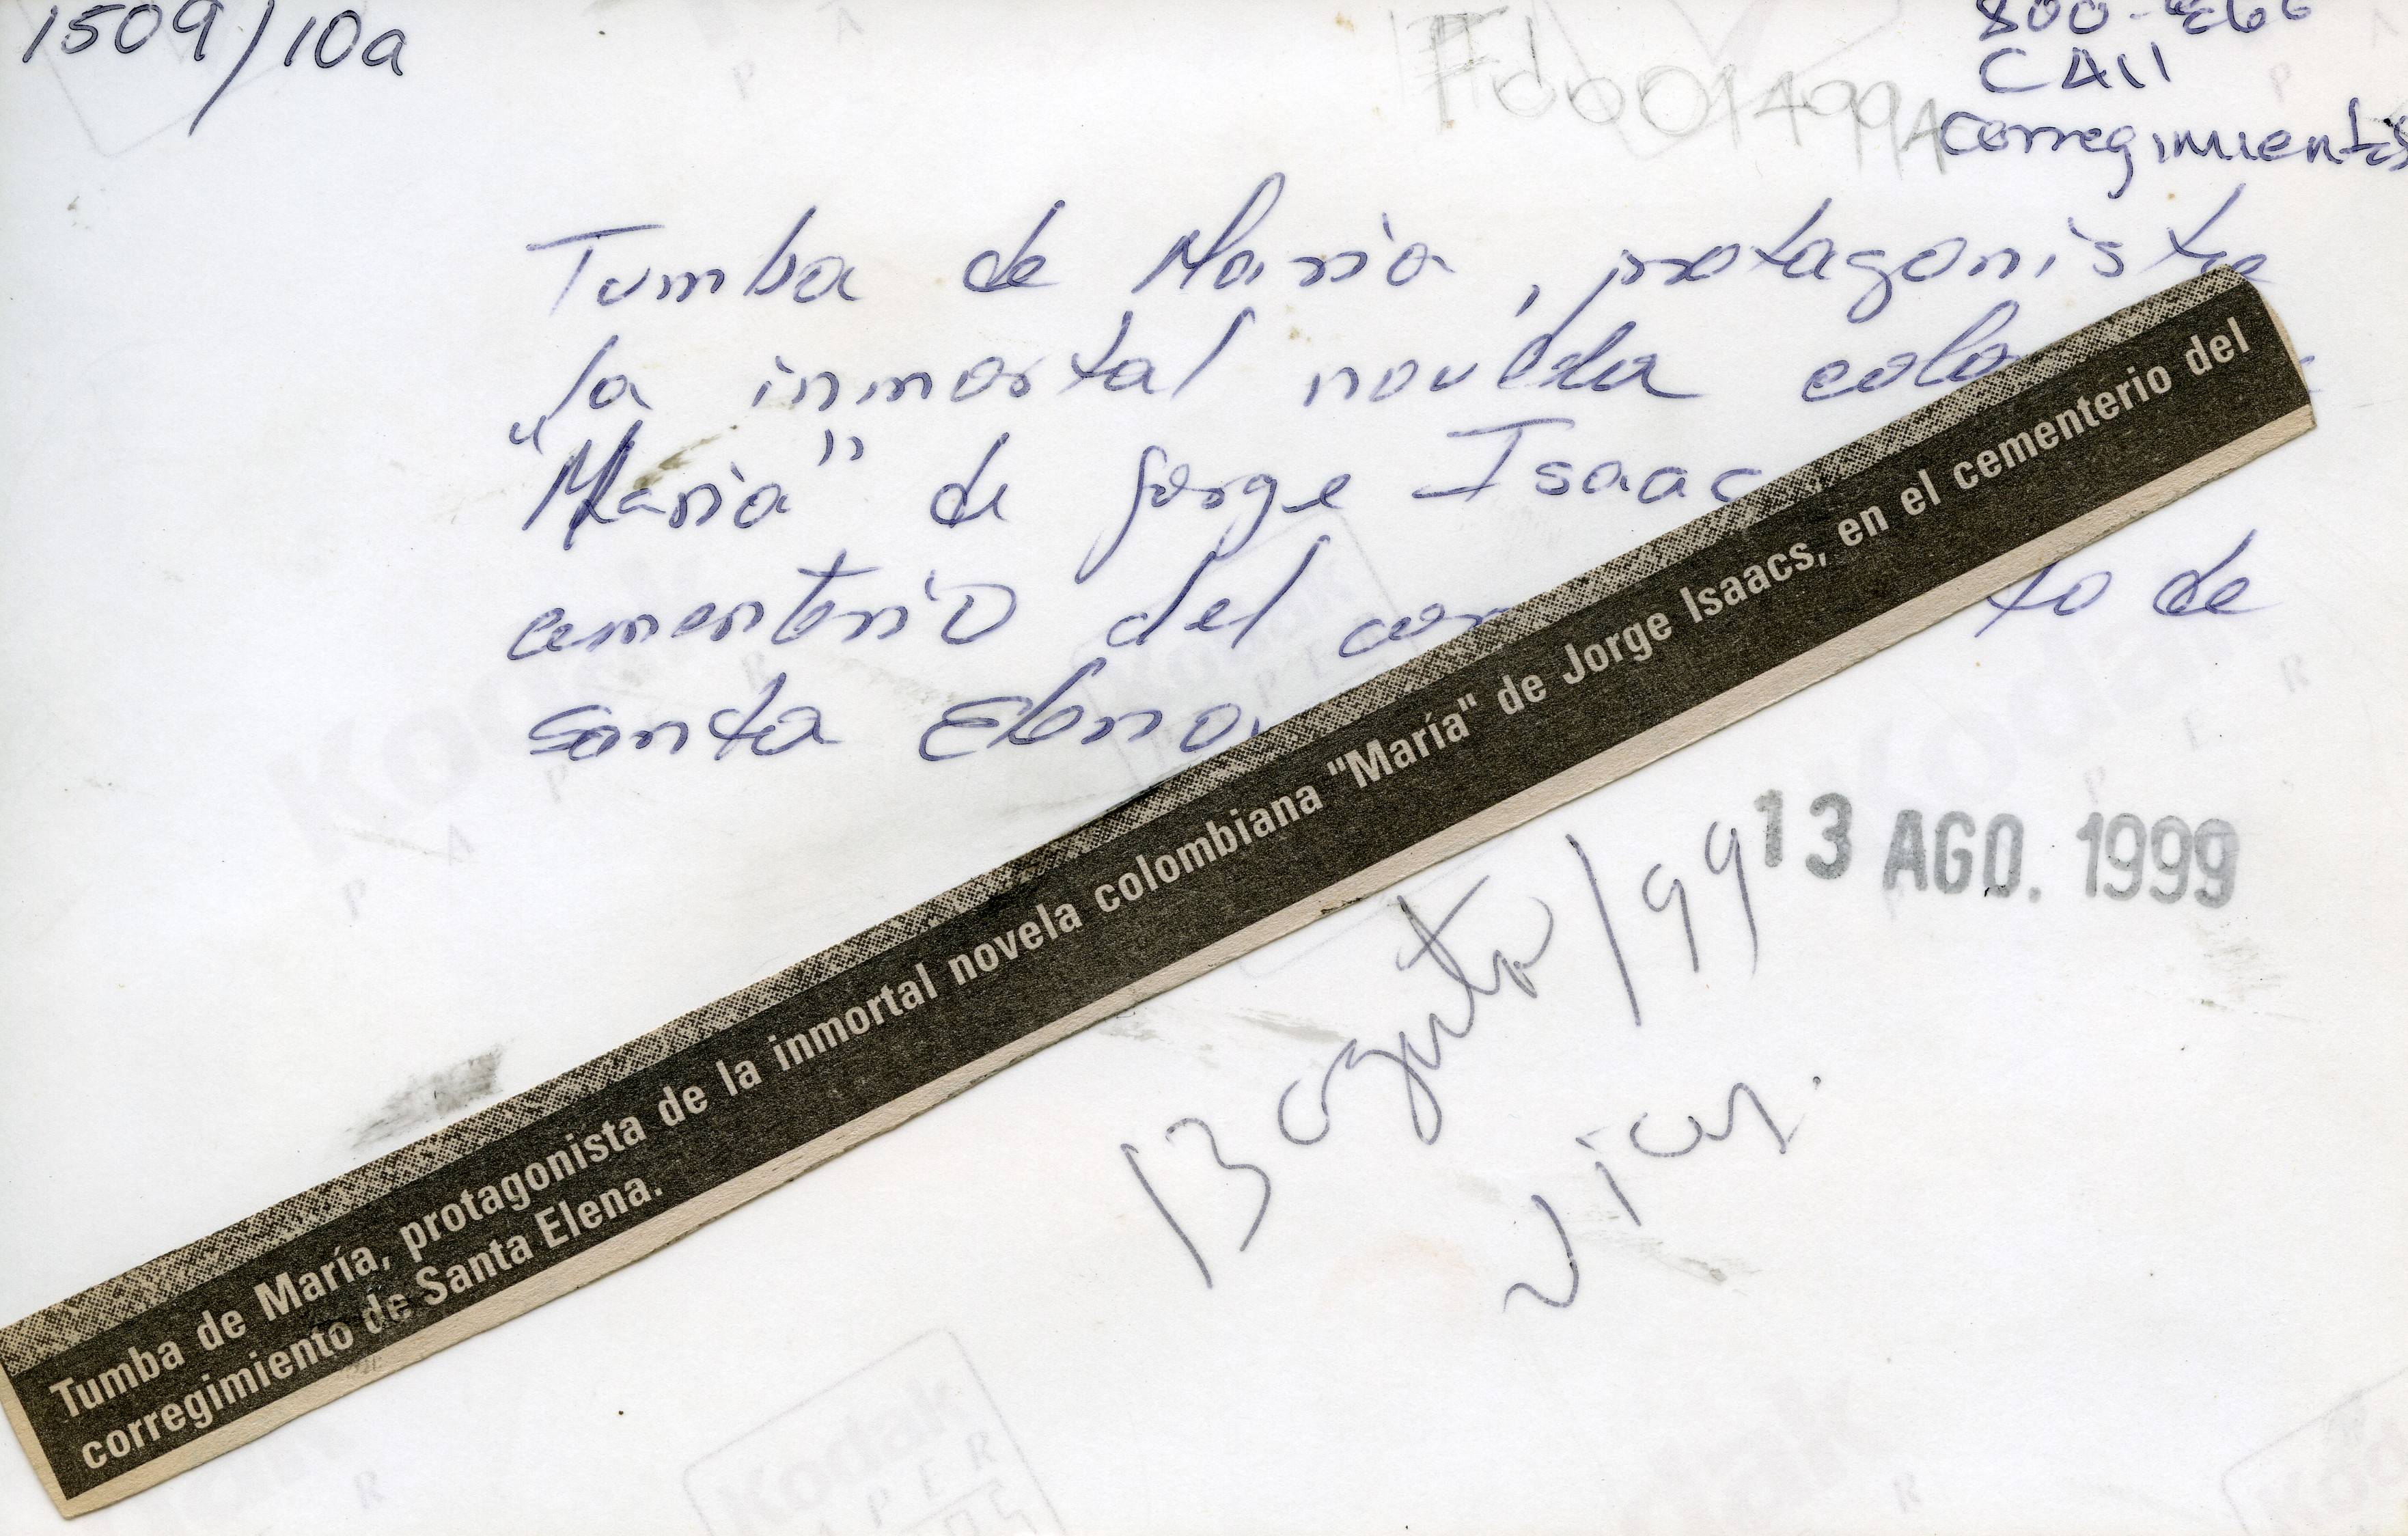 1509/10a
CAli
corregimientos
Tumba de Maria, protagonista
la inmortal novela colo
"Maria" de Jorge Isaac
cementerio del cor to de
Santa Elena.
Tumba de María, protagonista de la inmortal novela colombiana "María" de Jorge Isaacs, en el cementerio del
corregimiento de Santa Elena.
13 AGO. 1999
13 agosto/99
Kodak